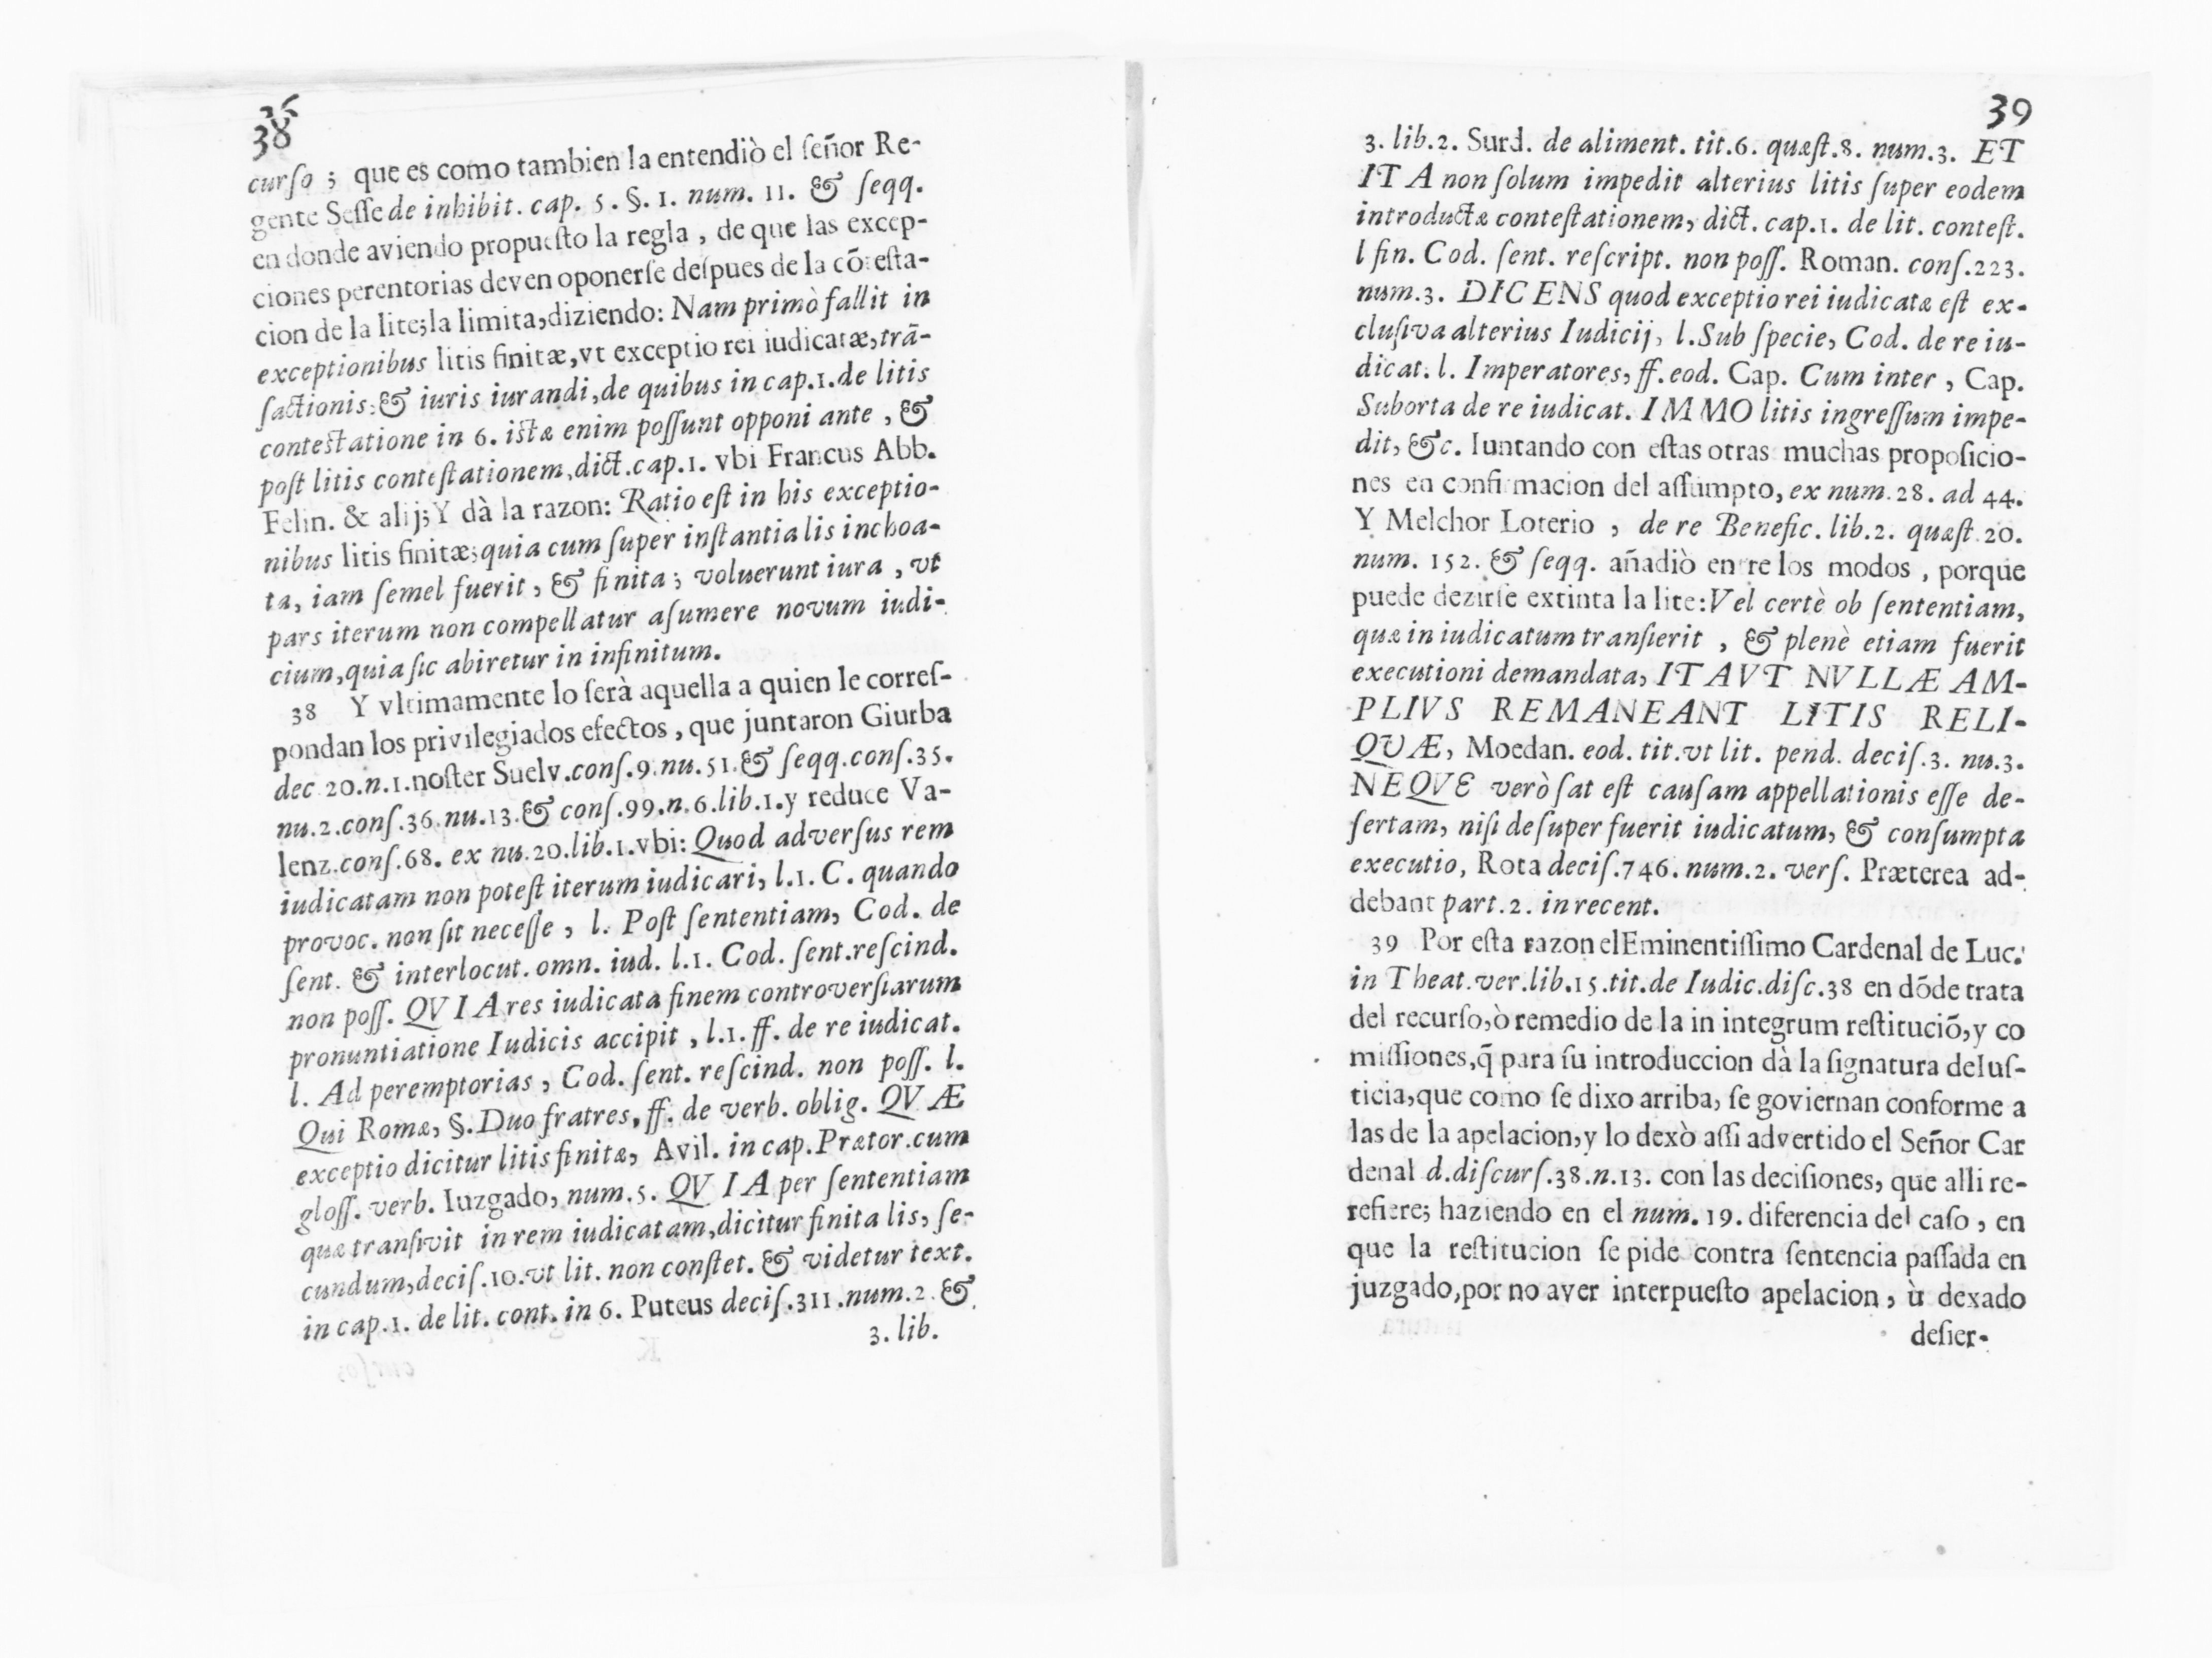 36
38
curſo ; que es como tambien la entendiò el ſeñor Re-
gente Seſſe de inhibit. cap. 5. §. 1. num. 11. & ſeqq.
en donde aviendo propueſto la regla , de que las excep-
ciones perentorias deven oponerſe deſpues de la cõteſta-
cion de la lite;la limita,diziendo: Nam primò fallit in
exceptionibus litis finitæ,vt exceptio rei iudicatæ,trã-
ſactionis,& iuris iurandi,de quibus in cap.1.de litis
conteſtatione in 6. iſtæ enim poſſunt opponi ante , &
poſt litis conteſtationem,dict.cap.1. vbi Francus Abb.
Felin. & alij;Y dà la razon: Ratio eſt in his exceptio-
nibus litis finitæ;quia cum ſuper inſtantia lis inchoa-
ta, iam ſemel fuerit , & finita ; voluerunt iura , vt
pars iterum non compellatur aſumere novum iudi-
cium,quia ſic abiretur in infinitum.
38 Y vltimamente lo ſerà aquella a quien le correſ-
pondan los privilegiados efectos , que juntaron Giurba
dec 20.n.1.noſter Suelv.conſ.9.nu.51.& ſeqq.conſ.35.
nu.2.conſ.36.nu.13.& conſ.99.n.6.lib.1.y reduce Va-
lenz.conſ.68. ex nu.20.lib.1.vbi: Quod adverſus rem
iudicatam non poteſt iterum iudicari, l.1. C. quando
provoc. non ſit neceſſe , l. Poſt ſententiam, Cod. de
ſent. & interlocut. omn. iud. l.1. Cod. ſent.reſcind.
non poſſ. QV I A res iudicata finem controverſiarum
pronuntiatione Iudicis accipit , l.1. ff. de re iudicat.
l. Ad peremptorias , Cod. ſent. reſcind. non poſſ. l.
Qui Romæ, §. Duo fratres, ff. de verb. oblig. QV Æ
exceptio dicitur litis finitæ, Avil. in cap.Prætor.cum
gloſſ. verb. Iuzgado, num.5. QV I A per ſententiam
quæ tranſivit in rem iudicatam,dicitur finita lis, ſe-
cundum,deciſ.10.vt lit. non conſtet. & videtur text.
in cap.1. de lit. cont. in 6. Puteus deciſ.311.num.2. &
3. lib.
39
3. lib.2. Surd. de aliment. tit.6. quæſt.8. num.3. ET
IT A non ſolum impedit alterius litis ſuper eodem
introductæ conteſtationem, dict. cap.1. de lit. conteſt.
l fin. Cod. ſent. reſcript. non poſſ. Roman. conſ.223.
num.3. DICENS quod exceptio rei iudicatæ eſt ex-
cluſiva alterius Iudicij, l.Sub ſpecie, Cod. de re iu-
dicat. l. Imperatores, ff. eod. Cap. Cum inter , Cap.
Suborta de re iudicat. IMMO litis ingreſſum impe-
dit, &c. Iuntando con eſtas otras muchas propoſicio-
nes en confirmacion del aſſumpto, ex num.28. ad 44.
Y Melchor Loterio , de re Benefic. lib.2. quæſt.20.
num. 152. & ſeqq. añadiò entre los modos , porque
puede dezirſe extinta la lite:Vel certè ob ſententiam,
quæ in iudicatum tranſierit , & plenè etiam fuerit
executioni demandata, IT AVT NVLLÆ AM-
PLIVS REMANEANT LITIS RELI-
QVÆ, Moedan. eod. tit.vt lit. pend. deciſ.3. nu.3.
NEQVE verò ſat eſt cauſam appellationis eſſe de-
ſertam, niſi deſuper fuerit iudicatum, & conſumpta
executio, Rota deciſ.746. num.2. verſ. Præterea ad-
debant part.2. in recent.
39 Por eſta razon el Eminentiſſimo Cardenal de Luc.
in Theat.ver.lib.15.tit.de Iudic.diſc.38 en dõde trata
del recurſo,ò remedio de la in integrum reſtituciõ,y co
miſſiones,q̃ para ſu introduccion dà la ſignatura de Iuſ-
ticia,que como ſe dixo arriba, ſe goviernan conforme a
las de la apelacion,y lo dexò aſſi advertido el Señor Car
denal d.diſcurſ.38.n.13. con las deciſiones, que alli re-
refiere; haziendo en el num. 19. diferencia del caſo , en
que la reſtitucion ſe pide contra ſentencia paſſada en
juzgado,por no aver interpueſto apelacion , ù dexado
deſier-